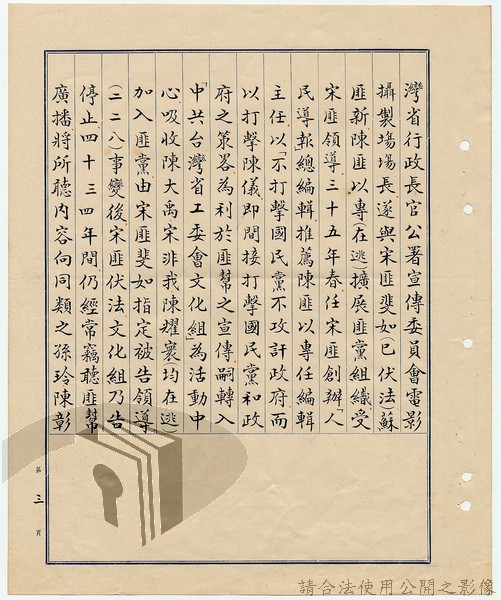 灣省行政長官公署宣傳委員會電影
攝製場場長遂與宋匪斐如(已伏法)蘇
匪新陳匪以專(在逃)擴展匪黨組織受
宋匪領導三十五年春任宋匪創辦「人
民導報總編輯推薦陳匪以專任編輯
主任以「不打擊國民黨不攻訐政府而
以打擊陳儀即間接打擊國民黨和政
府之策畧為利於匪幫之宣傳嗣轉入
「中共台灣省工委會文化組」為活動中
心吸收陳大禹宋非我陳耀寰均在逃)
加入匪黨由宋匪斐如指定被告領導
(二二八)事變後宋匪伏法文化組乃告
停止四十三四年間仍經常竊聽匪幫
廣播將所聽內容向同類之孫玲陳彰
第三頁
請合法使用公開之影像